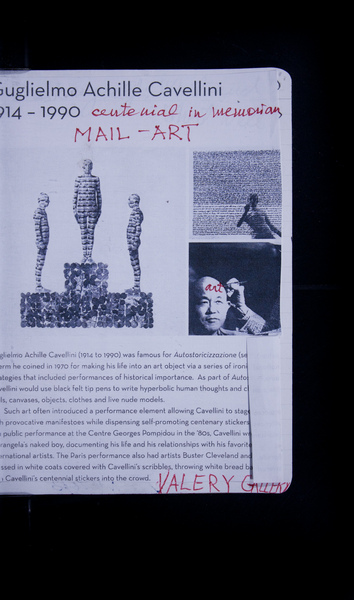 Guglielmo Achille Cavellini
1914 – 1990 centenial in memorian
MAIL-ART
art
glielmo Achille Cavellini (1914 to 1990) was famous for Autostoricizzazione (se
erm he coined in 1970 for making his life into an art object via a series of ironi
ategies that included performances of historical importance. As part of Autos
vellini would use black felt tip pens to write hyperbolic human thoughts and c
ls, canvases, objects, clothes and live nude models.
Such art often introduced a performance element allowing Cavellini to stage
h provocative manifestoes while dispensing self-promoting centenary stickers
public performance at the Centre Georges Pompidou in the '80s, Cavellini w
rangela's naked boy, documenting his life and his relationships with his favorite
ernational artists. The Paris performance also had artists Buster Cleveland and
ssed in white coats covered with Cavellini's scribbles, throwing white bread b
Cavellini's centennial stickers into the crowd. VALERY